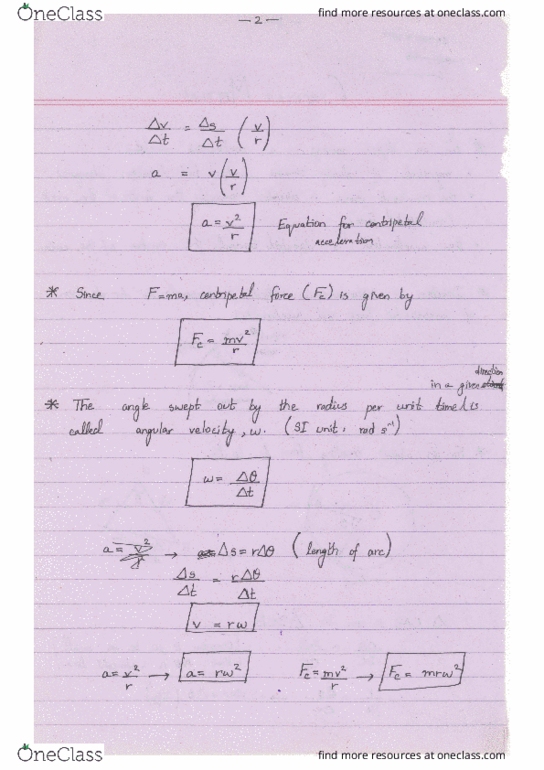 OneClass
find more resources at oneclass.com
— 2 —
Δv/Δt = Δs/Δt (v/r)
a = v(v/r)
a = v²/r Equation for centripetal acceleration
* Since F=ma, centripetal force (Fc) is given by
Fc = mv²/r
direction
in a given
* The angle swept out by the radius per unit time is
called angular velocity, ω. (SI unit: rad s⁻¹)
ω = Δθ/Δt
a = v²/r → Δs = rΔθ (length of arc)
Δs/Δt = rΔθ/Δt
v = rω
a = v²/r → a = rω² Fc = mv²/r → Fc = mrω²
OneClass
find more resources at oneclass.com